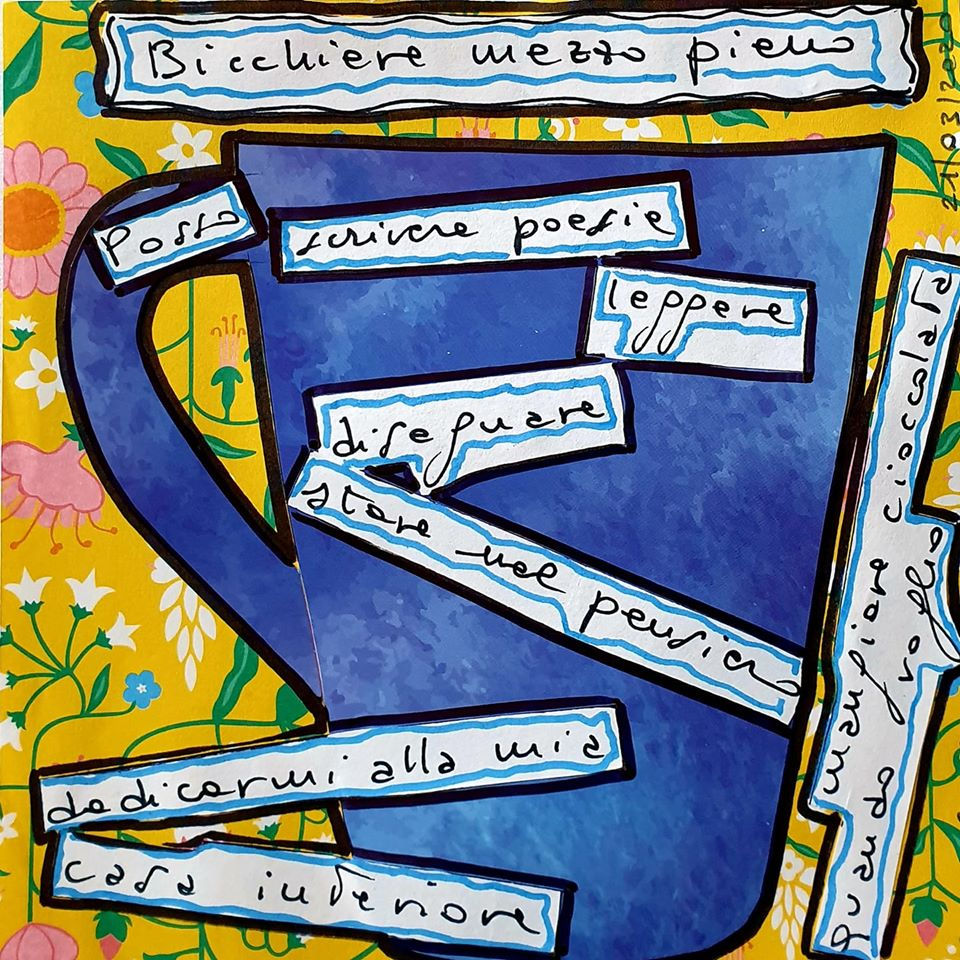 Bicchiere mezzo pieno
21/03/2020
Posso
scrivere poesie
leggere
disegnare
stare nel pensiero
dedicarmi alla mia
casa interiore
mangiare cioccolata
quando voglio